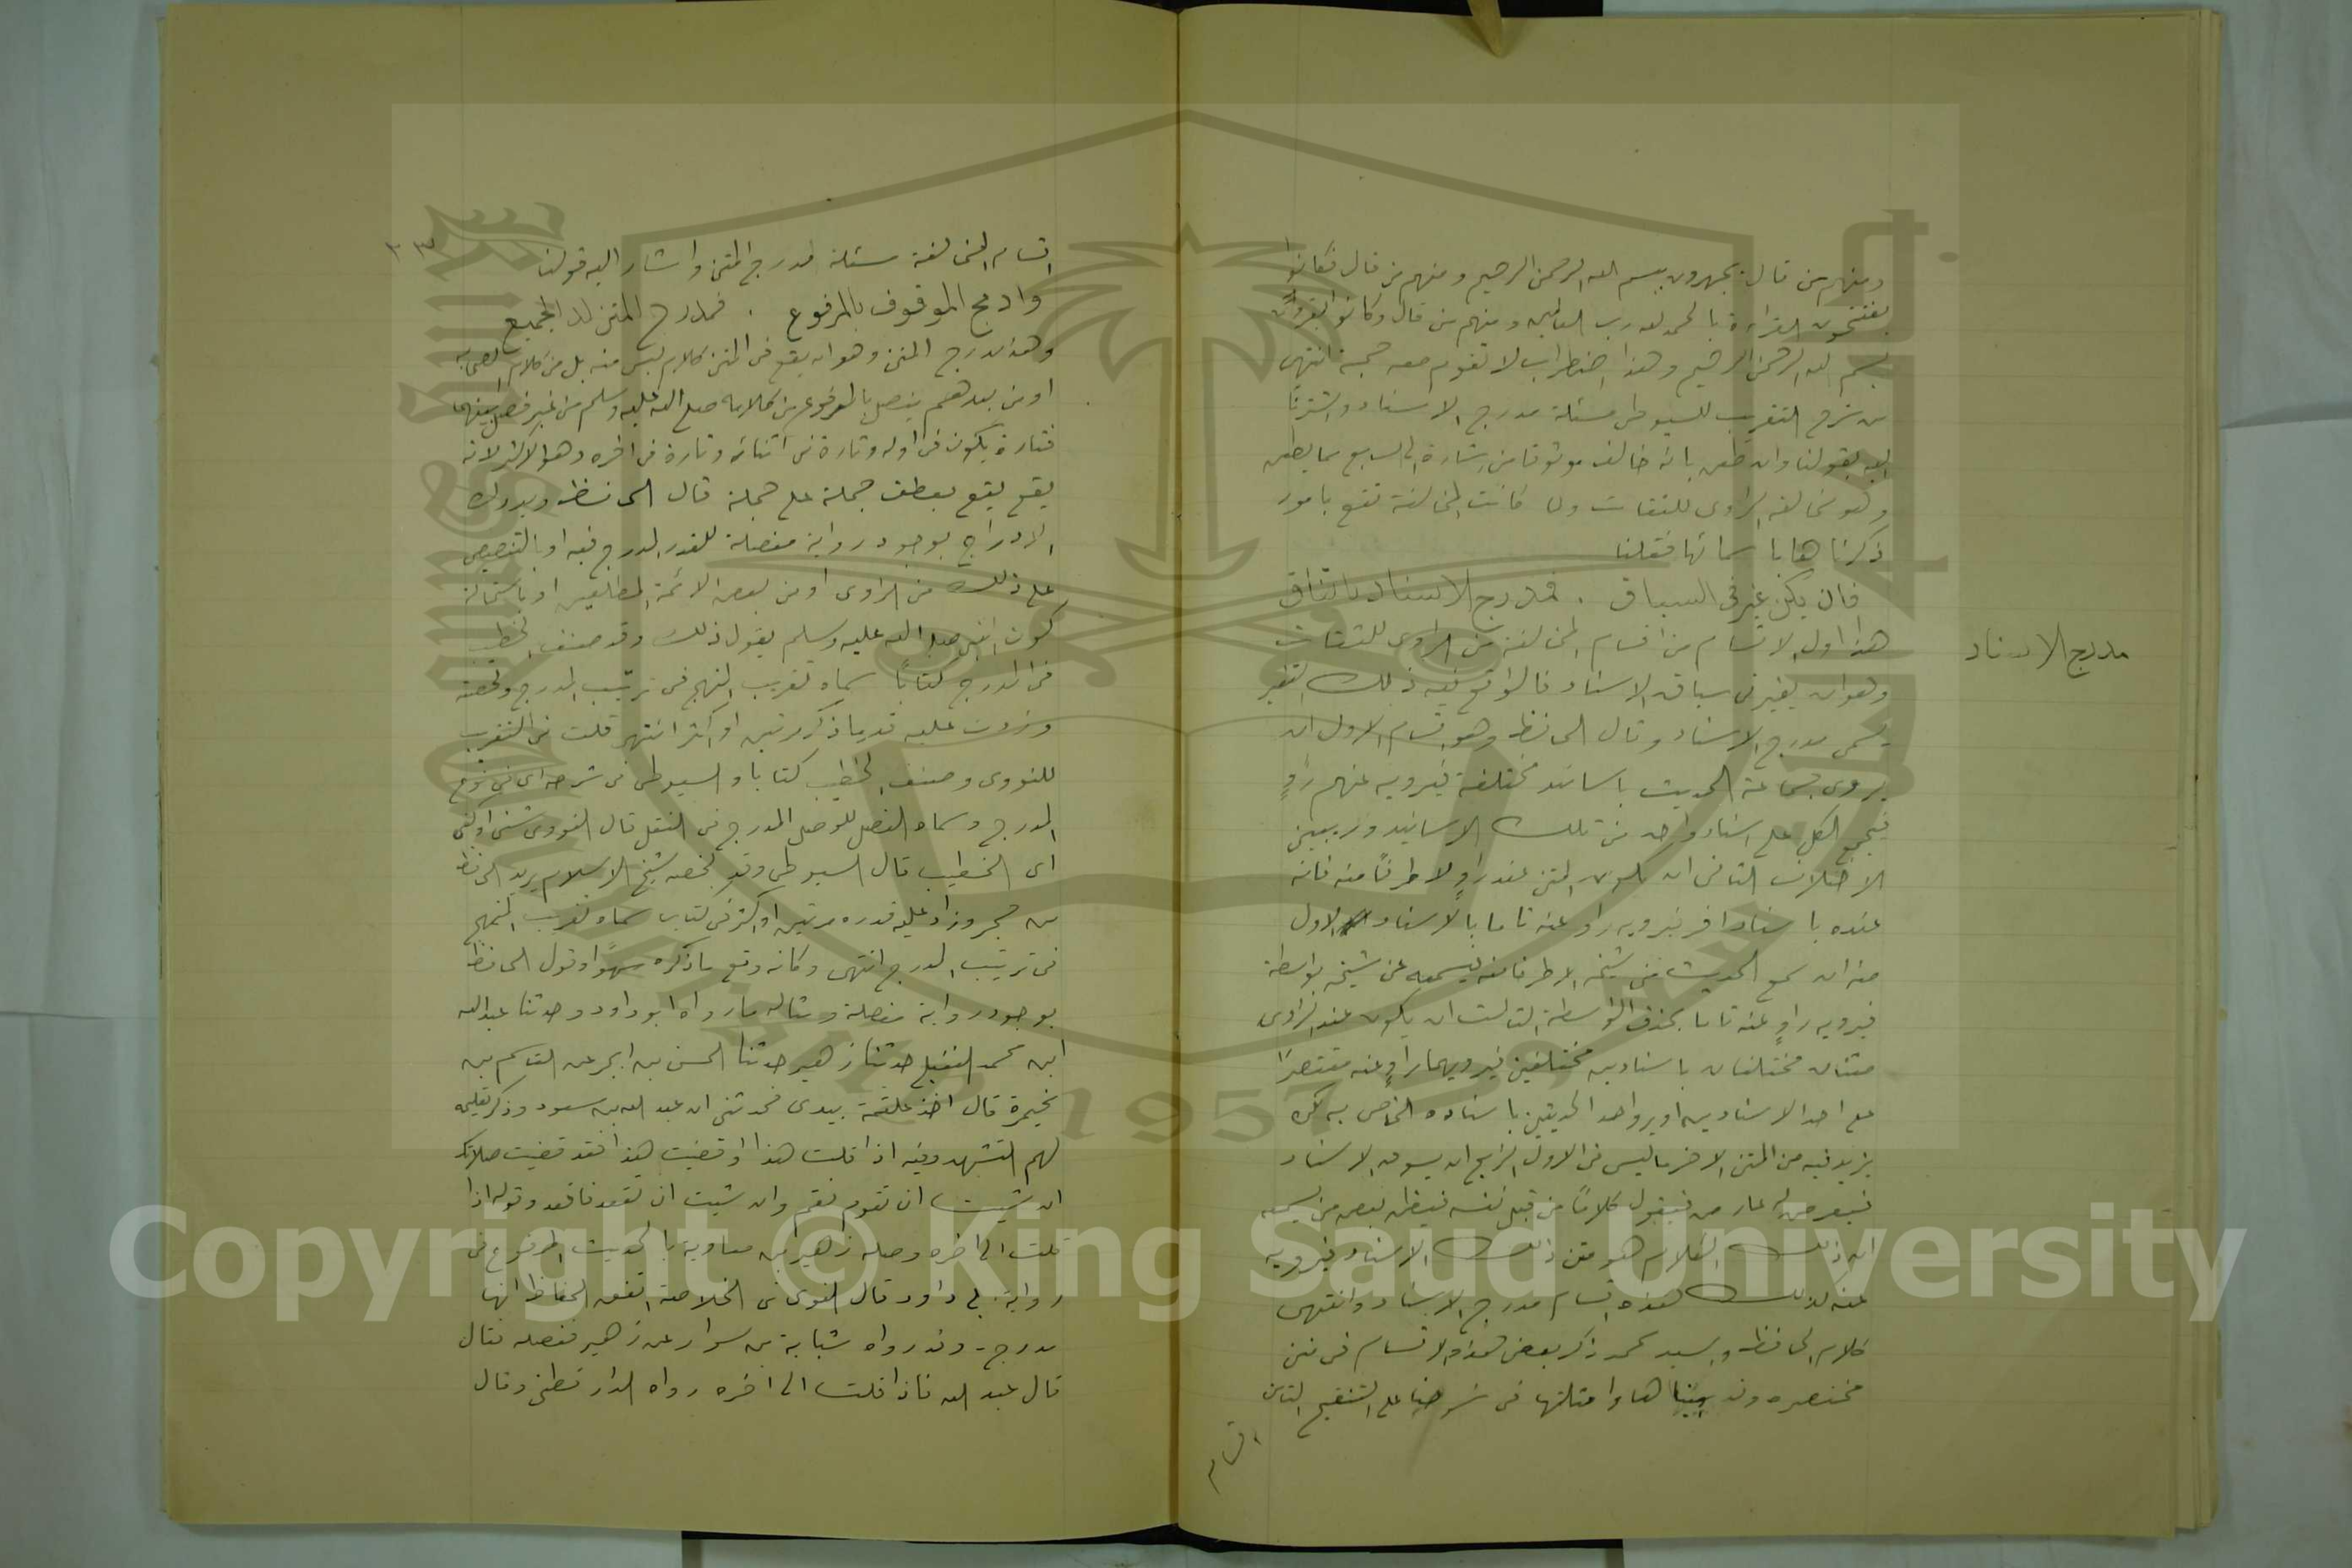 ومنهم من قال يجهرون ببسم الله الرحمن الرحيم ومنهم من قال فكانوا
يفتتحون القراءة بالحمد لله رب العالمين ومنهم من قال وكانوا يقرؤن
بسم الله الرحمن الرحيم وهذا اضطراب لا تقوم معه حجة انتهى
من شرح التقريب للسيوطي مسئلة مدرج الاسناد واشرنا
اليه بقولنا وان طعن بانه خالف موثوقا من اشارة الى السابع مما يطعن
وهو مخالفة الراوى للثقات ولما كانت المخالفة تقع بامور
ذكرناها باسمائها فقلنا
فان يكن غير فى السياق . فمدرج الاسناد باتفاق
مدرج الاسناد
هذا اول الاقسام من اقسام المخالفة من الراوى للثقات
وهو ان يغير فى سياق الاسناد فالواقع فيه ذلك التغير
يسمى مدرج الاسناد وقال الحافظ وهو اقسام الاول ان
يروى جماعة الحديث باسانيد مختلفة فيرويه عنهم راوٍ
فيجمع الكل على اسناد واحد من تلك الاسانيد ولا يبين
الاختلاف الثانى ان يكون المتن عند راوٍ لا طرفاً منه فانه
عنده باسناد اخر فيرويه راو عنه تاما بالاسناد الاول
منه ان سمع الحديث من شيخه الا طرفا منه فيسمعه عن شيخه بواسطة
فيرويه راوٍ عنه تاما بحذف الواسطة الثالث ان يكون عند الراوى
متنان مختلفان باسنادين مختلفين فيرويهما راوٍ عنه مقتصرا
على احد الاسنادين او يروا حد الحديثين باسناده الخاص به لكن
يزيد فيه من المتن الاخر ما ليس فى الاول الرابع ان يسوق الاسناد
فيعرض له عارض فيقول كلاماً من قبل نفسه فيظن بعض من سمعه
ان ذلك الكلام هو متن ذلك الاسناد فيرويه
عنه كذلك هذه اقسام مدرج الاسناد وانتهى
كلام الحافظ والسيد محمد ذكر بعض هذه الاقسام فى متن
مختصره وقد بيناها وامثلتها فى شرحنا على التنقيح الثانى
اقسام
٣٣
اقسام المخالفة مسئلة مدرج المتن واشار اليه قولنا
وادمج الموقوف بالمرفوع . فمدرج المتن لدى الجميع
وهذا مدرج المتن وهو ان يقع فى المتن كلام ليس منه بل من كلام الصحابه
او من بعدهم يتصل بالمرفوع من كلامه صلى الله عليه وسلم من غير فصل بينهما
فتارة يكون فى اوله وتارة فى اثنائه وتارة فى اخره وهو الاكثر لانه
يقع يقع بعطف جملة على جملة قال الحافظ ويدرك
الادراج بوجود رواية مفصلة للقدر المدرج فيه او بالتنصيص
على ذلك من الراوى او من بعض الائمة المطلعين او باستحالة
كون النبى صلى الله عليه وسلم يقول ذلك وقد صنف الخطيب
فى المدرج كتاباً سماه تقريب المنهج فى ترتيب المدرج ولخصته
وزدت عليه قدر ما ذكر مرتين او اكثر انتهى قلت فى التقريب
للنووى وصنف الخطيب كتابا والسيوطى فى شرحه اى فى نوع
المدرج وسماه الفصل للوصل المدرج فى النقل قال النووى شفى وكفى
اى الخطيب قال السيوطى وقد لخصه شيخ الاسلام يريد الحافظ
بن حجر وزاد عليه قدره مرتين او اكثر فى كتاب سماه تقريب المنهج
فى ترتيب المدرج انتهى وكانه وقع ما ذكره سهواً وقول الحافظ
بوجود رواية مفصلة ومثاله ما رواه ابو داود وحدثنا عبد الله
ابن محمد النفيلى حدثنا زهير حدثنا الحسن بن ابجر عن القاسم بن
مخيمرة قال اخذ علقمة بيدى فحدثنى ان عبد الله بن مسعود وذكر تعليمه
لهم التشهد وفيه اذا قلت هذا او قضيت هذا فقد قضيت صلاتك
ان شيت ان تقوم فقم وان شيت ان تقعد فاقعد وقوله اذا
قلت الى اخره وصله زهير بن معاوية بالحديث المرفوع فى
رواية ابى داود قال النووى فى الخلاصة اتفق الحفاظ انها
مدرج - وقد رواه شبابة بن سوار عن زهير ففصله فقال
قال عبد الله فاذا قلت الى اخره رواه الدارقطنى وقال
Copyright © King Saud University
1957